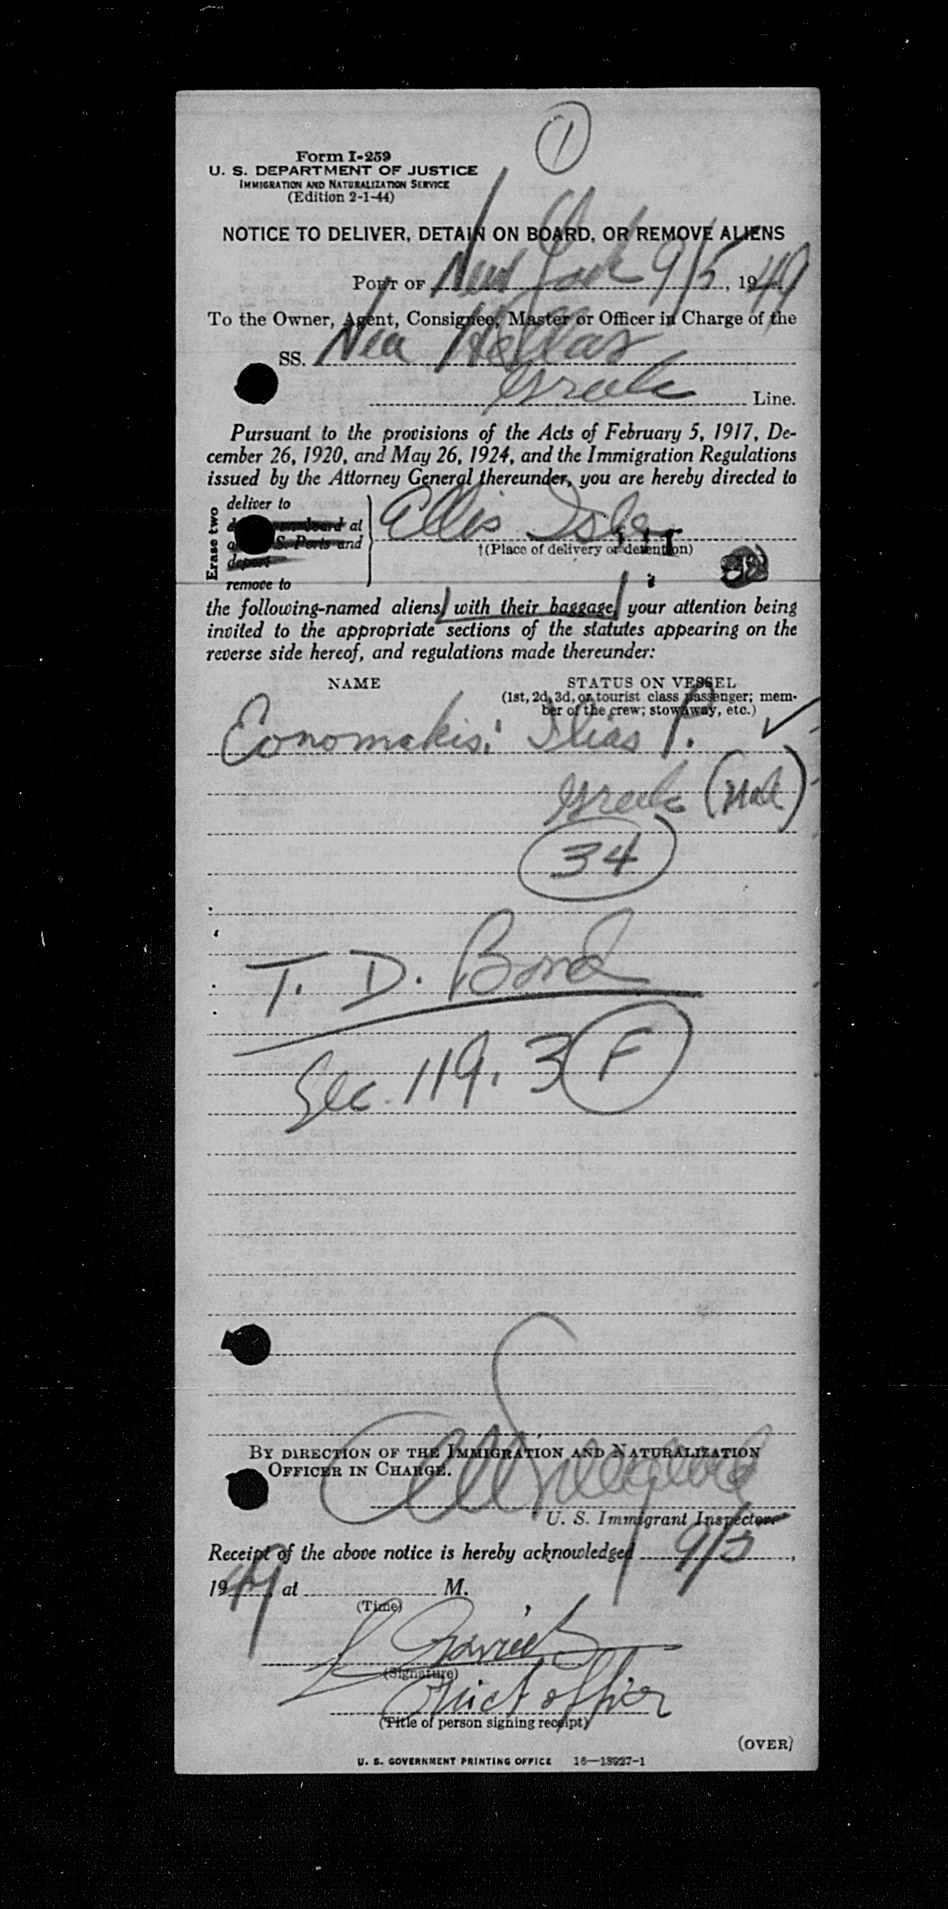 1
Form I-259
U. S. DEPARTMENT OF JUSTICE
IMMIGRATION AND NATURALIZATION SERVICE
(Edition 2-1-44)
NOTICE TO DELIVER, DETAIN ON BOARD, OR REMOVE ALIENS
PORT OF New York 9/5, 1949
To the Owner, Agent, Consignee, Master or Officer in Charge of the
SS. Nea Hellas
Greek Line.
Pursuant to the provisions of the Acts of February 5, 1917, De-
cember 26, 1920, and May 26, 1924, and the Immigration Regulations
issued by the Attorney General thereunder, you are hereby directed to
Erase two
deliver to
board at
S. Ports and
deport
remove to
Ellis Isle
†(Place of delivery or detention)
the following-named aliens, with their baggage, your attention being
invited to the appropriate sections of the statutes appearing on the
reverse side hereof, and regulations made thereunder:
NAME STATUS ON VESSEL
(1st, 2d, 3d, or tourist class passenger; mem-
ber of the crew; stowaway, etc.)
Economakis, Ilias P.
Greek (Nat)
34
T. D. Bond
Sec. 119. 3 F
BY DIRECTION OF THE IMMIGRATION AND NATURALIZATION
OFFICER IN CHARGE.
U. S. Immigrant Inspector
Receipt of the above notice is hereby acknowledged 9/5,
1949, at M.
(Time)
(Signature)
Chief officer
(Title of person signing receipt)
(OVER)
U. S. GOVERNMENT PRINTING OFFICE 16—13927-1